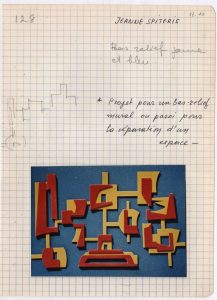 128
JEANNE SPITERIS
Bas relief jaune
et bleu
* Projet pour un bas-relief
mural ou paroi pour
la séparation d'un
espace —